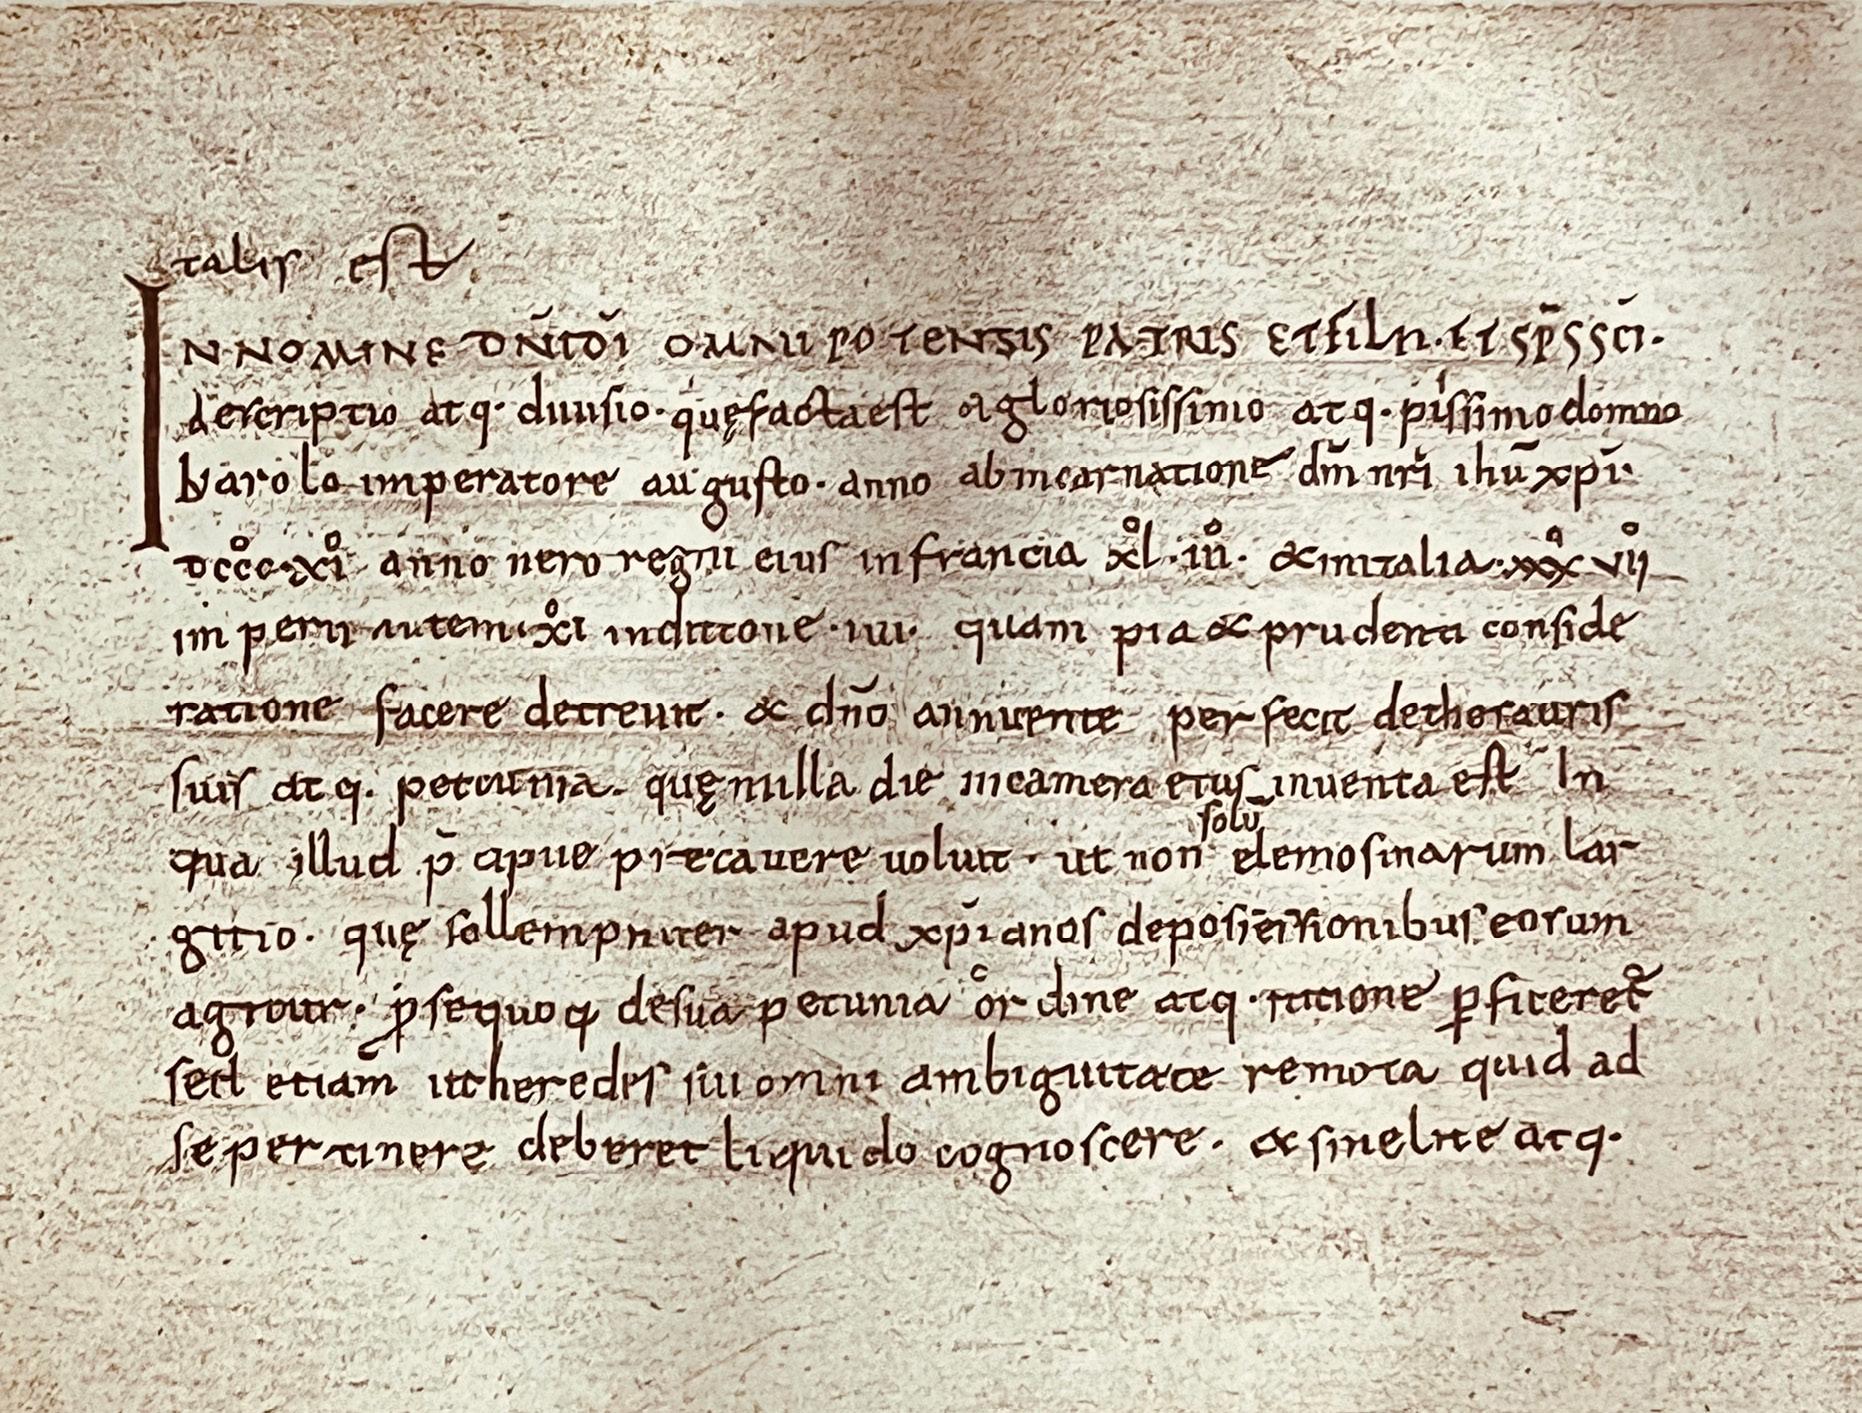 talis est
IN NOMINE DN̄I DĪ OMNIPOTENSIS PATRIS ET FILII · ET SP̄S SC̄I ·
descriptio atq· diuisio · quę facta est a gloriosissimo atq· piissimo domno
karolo imperatore augusto · anno ab incarnatione dn̄i nr̄i ihū xp̄i ·
DCCC̊·XI̊ anno uero regni eius in francia XL̊ · III̊ · & in italia · XXX̊ VI̊I
imperii autem · XI̊ indictione · IIII · quam pia & prudenti conside
ratione facere decreuit · & dn̄o annuente perfecit de thesauris
suis atq· pecunia · quę in illa die in camera eius inuenta est In
qua illud p̄cipue precauere uoluit · ut non solū elemosinarum lar
gitio · quę sollempniter apud xp̄ianos de possessionibus eorum
agitur · p se quoq de sua pecunia ordine atq· ratione pficeret
sed etiam ut heredes sui omni ambiguitate remota quid ad
se pertinere deberet liquido cognoscere · & sine lite atq·